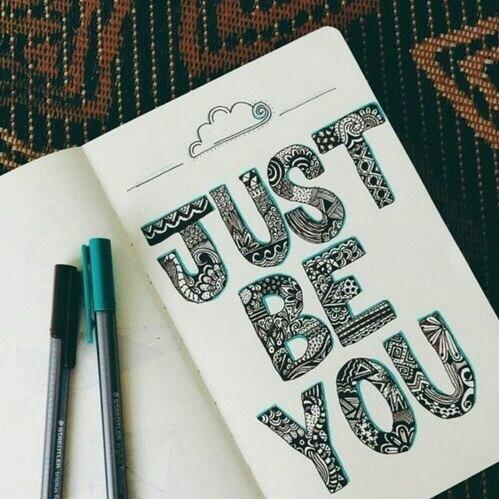 JUST
BE
YOU
STAEDTLER
STAEDTLER